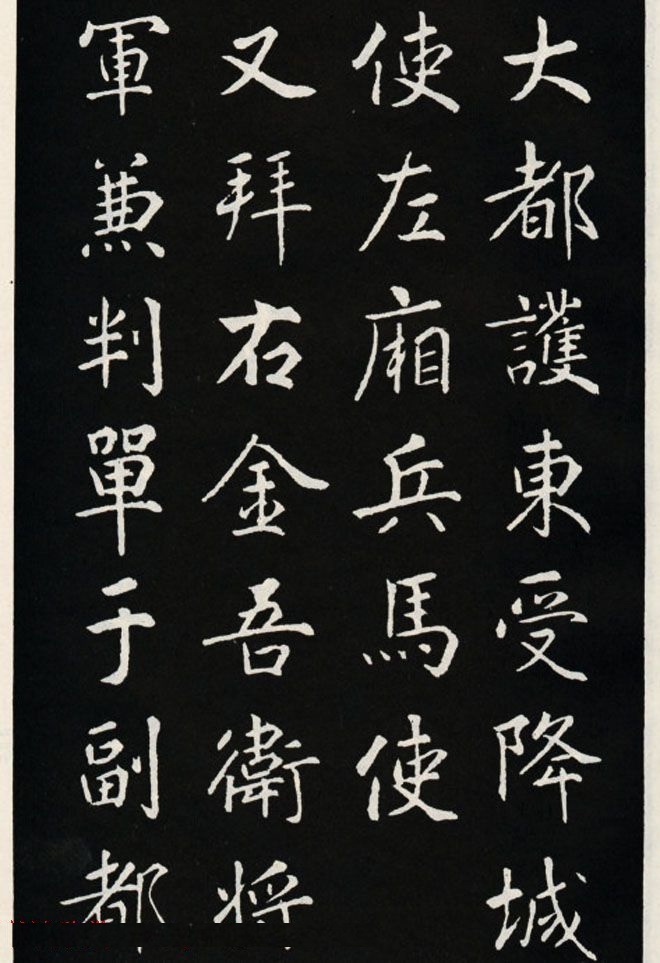 大都護東受降城
使左廂兵馬使
又拜右金吾衛將
軍兼判單于副都